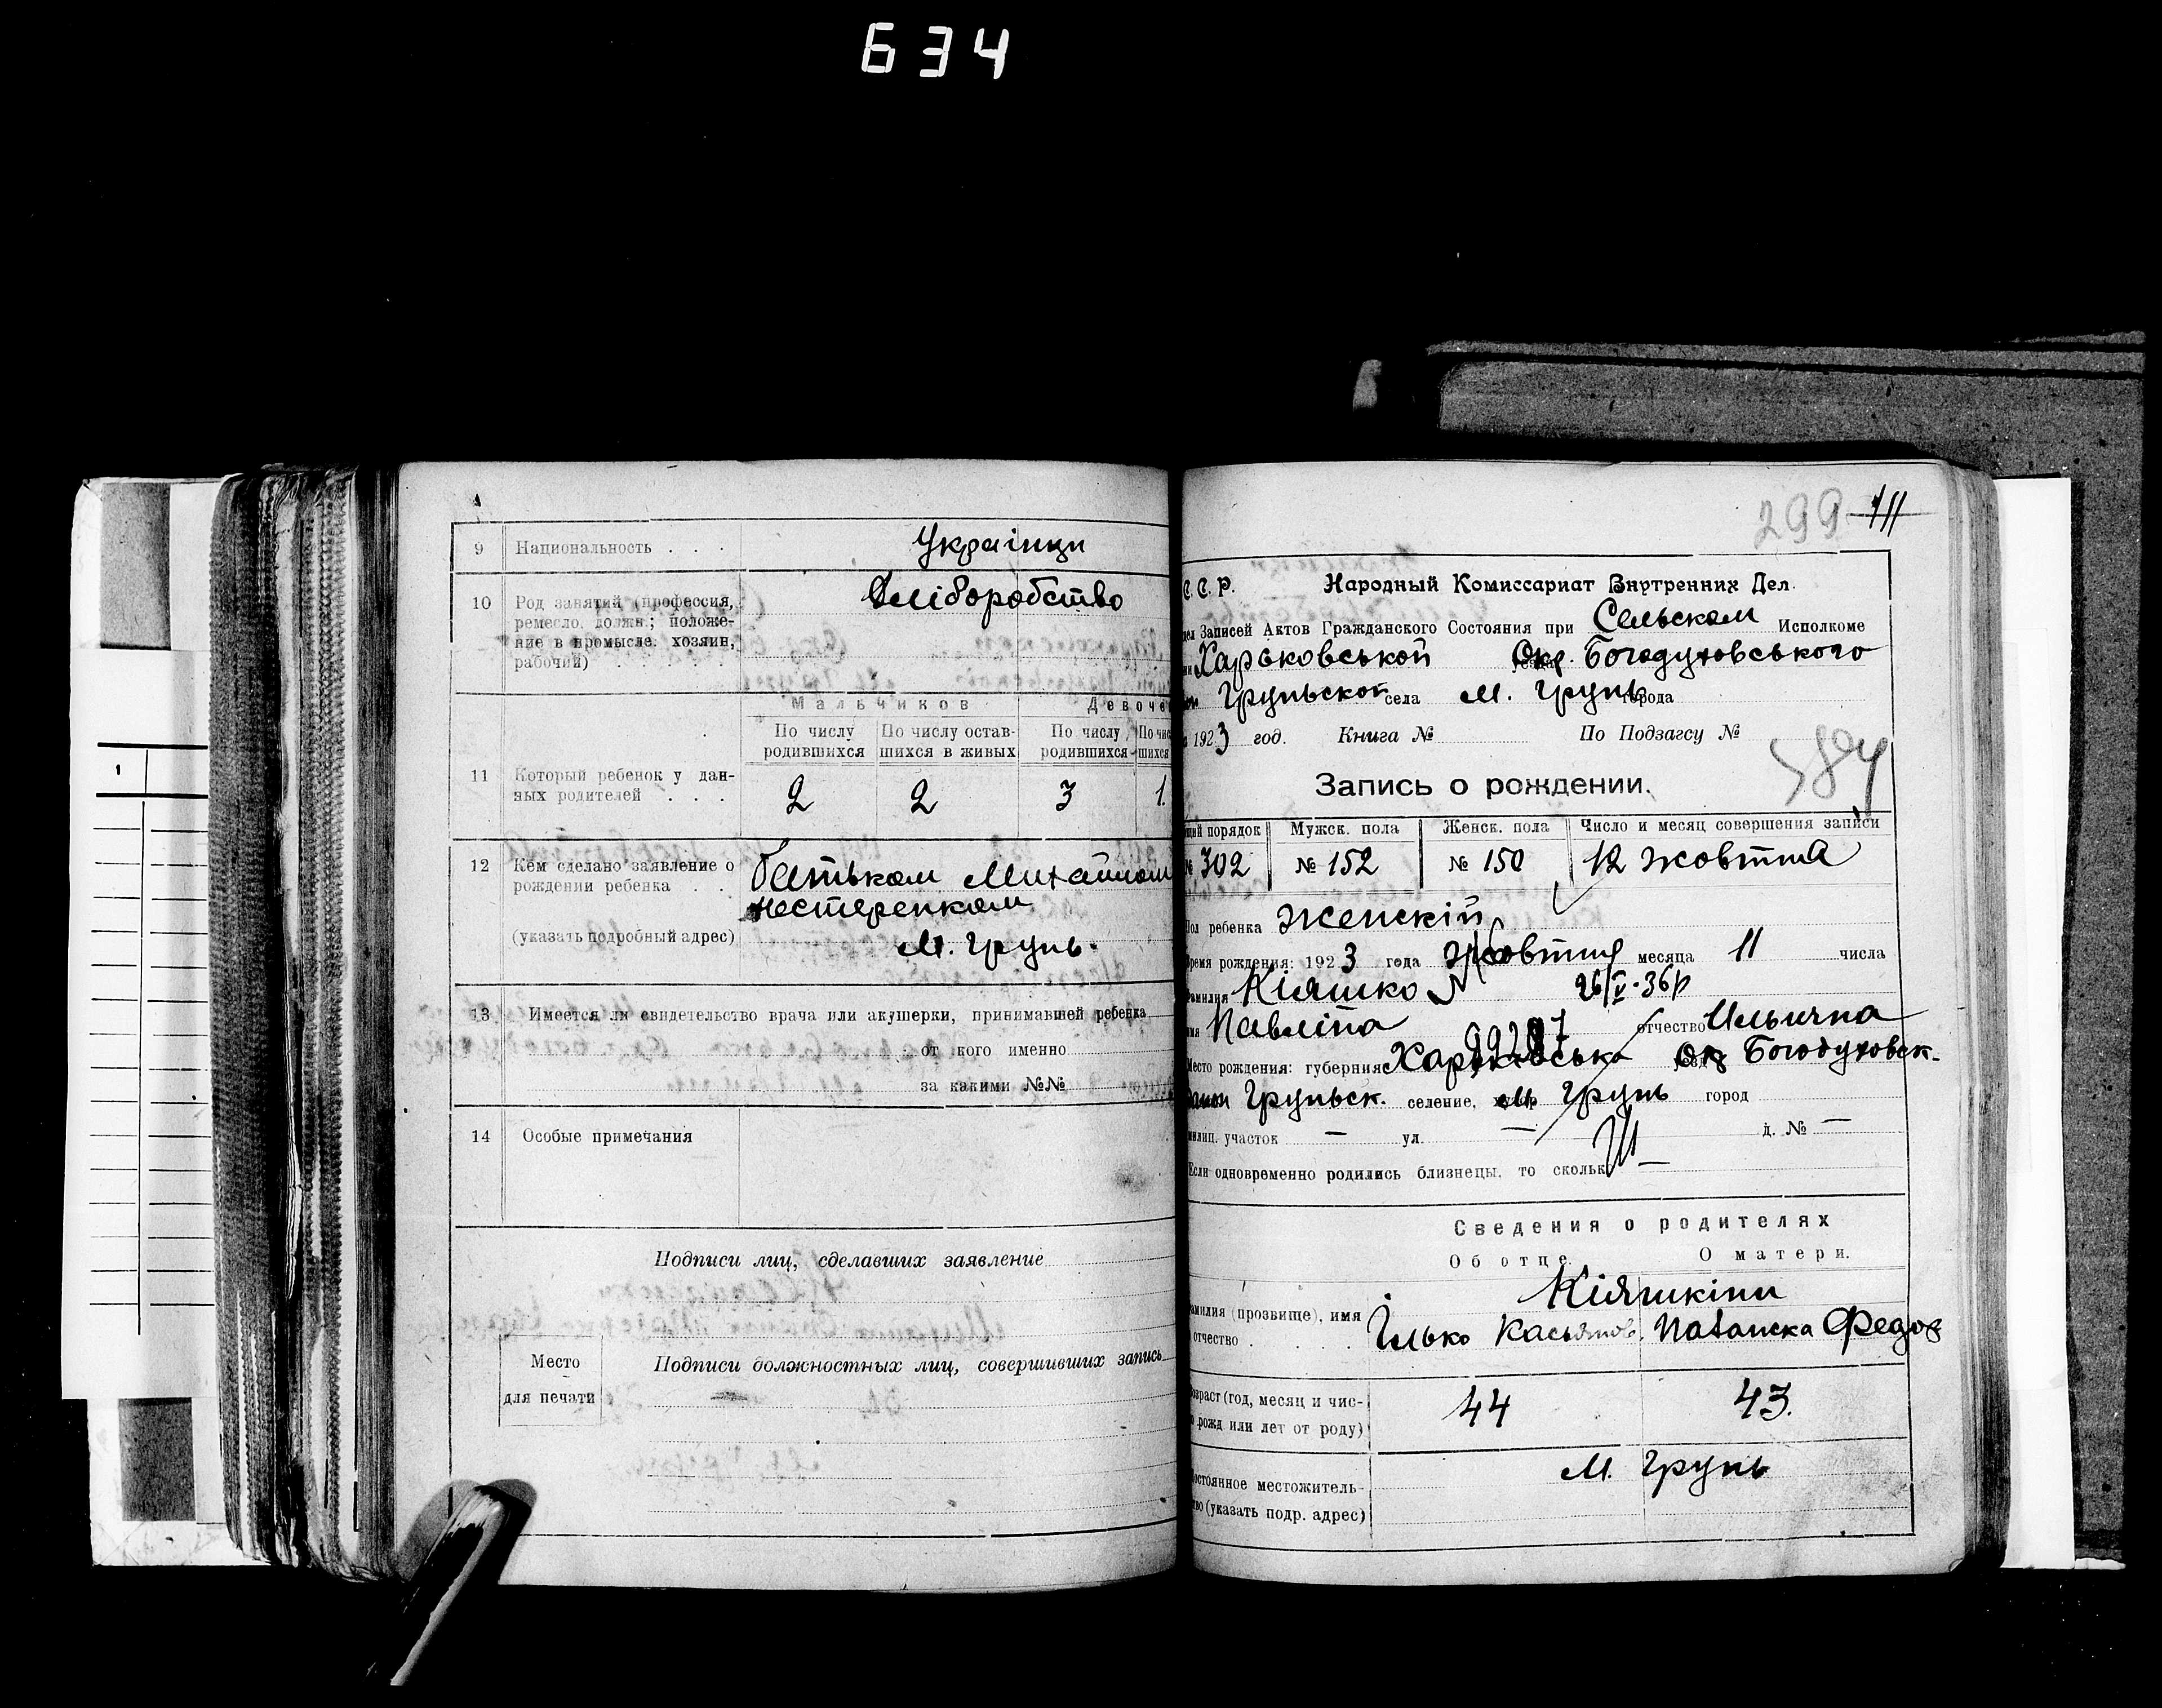 634
9 Национальность . . . Українци
10 Род занятий (профессия, Хліборобство
ремесло, должн.; положе-
ние в промысле. хозяин,
рабочий)
Мальчиков Девоче
По числу родившихся По числу остав-шихся в живых По числу родившихся По чис шихся
11 Который ребенок у дан-
ных родителей . . . 2 2 3 1.
12 Кем сделано заявление о Батьком Михайлом
рождении ребенка . . Нестеренком
(указать подробный адрес) М. Грунь.
13 Имеется ли свидетельство врача или акушерки, принимавшей ребенка
от кого именно
за какими №№
14 Особые примечания
Подписи лиц, сделавших заявление
Место
для печати
Подписи должностных лиц, совершивших запись
299 111
С. С. Р. Народный Комиссариат Внутренних Дел.
Записей Актов Гражданского Состояния при Сельском Исполкоме
Харьковськой Окр. Богодуховського
Груньской села М. Грунь города
1923 год. Книга № По Подзагсу №
Запись о рождении.
порядок Мужск. пола Женск. пола Число и месяц совершения записи
№ 302 № 152 № 150 12 жовтня
Пол ребенка Женский
Время рождения: 1923 года Жовтня месяца 11 числа
Фамилия Кіяшко 26/V-36р
имя Павліна отчество Ильична
Место рождения: губерния Харьковська Окр Богодуховск.
Груньск. селение, М. Грунь город
участок — ул. — д. № —
Если одновременно родились близнецы, то сколько —
Сведения о родителях
Об отце О матери.
Фамилия (прозвище), имя Кіяшкіни
отчество . . . . Ілько Касьянов. Наталка Федор
Возраст (год, месяц и чис- 44 43.
рожд или лет от роду)
Постоянное местожитель- М. Грунь
(указать подр. адрес)